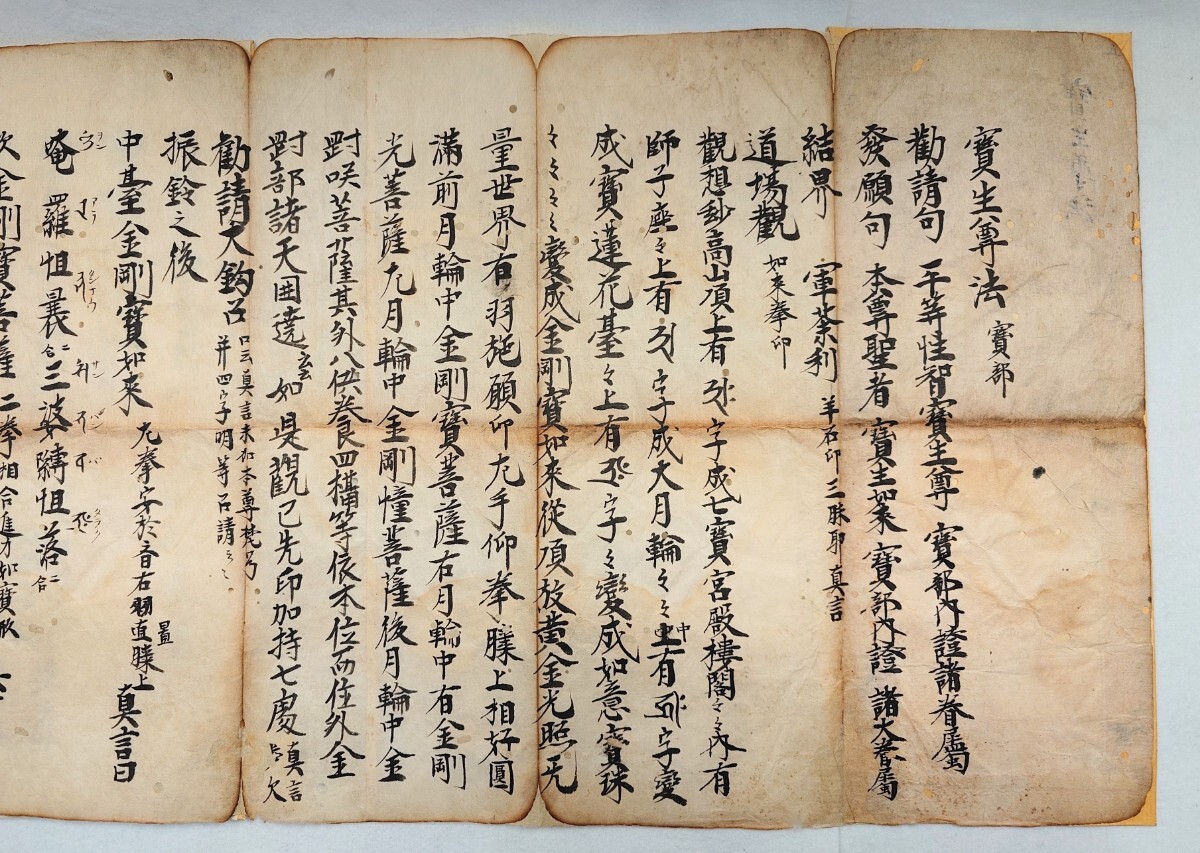 寶生尊法 寶部
勸請句 平等性智寶生尊 寶部內證諸眷屬
發願句 本尊聖者 寶生如來 寶部內證 諸大眷屬
結界 軍荼利 羊石印 三昧耶 真言
道場觀 如來拳印
觀想妙高山頂上有 字成七寶宮殿樓閣々々內有
師子座々上有 字成大月輪々々中上有 字變
成寶蓮花臺々上有 字々變成如意寶珠
々々々々變成金剛寶如來從頂放黃金光照无
量世界右羽施願印左手仰拳膝上相好圓
滿前月輪中金剛寶菩薩右月輪中有金剛
光菩薩左月輪中金剛幢菩薩後月輪中金
剛咲菩薩其外八供養四攝等依本位而住外金
剛部諸天囲遶云云 如是觀已先印加持七處 真言皆欠
勸請大鈎召 口云真言末加本尊梵号
并四字明等召請々々
振鈴之後
中臺金剛寶如來 左拳安於 右羽直置膝上 真言曰
唵 羅怛曩二合三婆縛怛落二合
次金剛寶菩薩 二拳相合進力如寶形